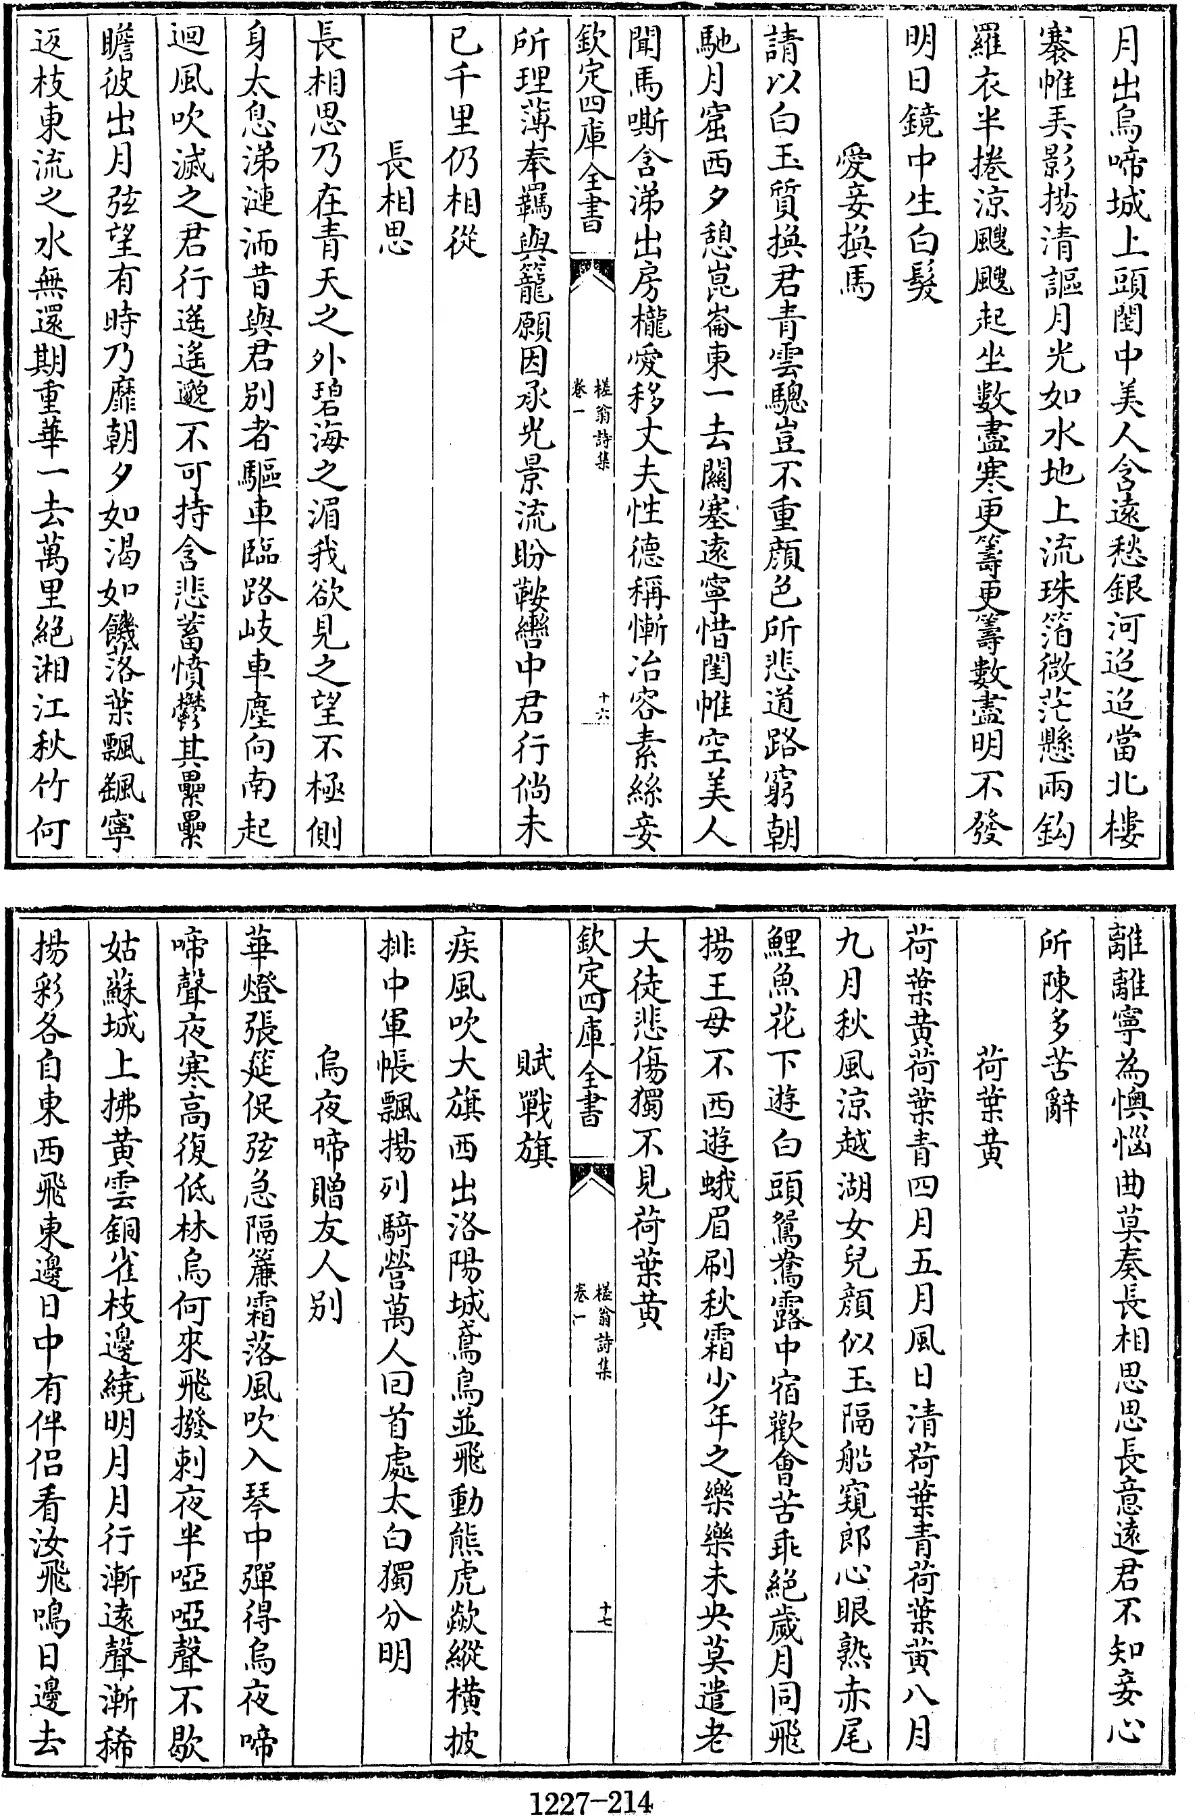 月出烏啼城上頭閨中美人含遠愁銀河迢迢當北樓
褰帷弄影揚清謳月光如水地上流珠箔微茫懸兩鈎
羅衣半捲涼颸颸起坐數盡寒更籌更籌數盡明不發
明日鏡中生白髮
愛妾換馬
請以白玉質換君青雲驄豈不重顔色所悲道路窮朝
馳月窟西夕憩崑崙東一去關塞遠寧惜閨帷空美人
聞馬嘶含涕出房櫳愛移丈夫性德稱慚冶容素絲妾
欽定四庫全書
槎翁詩集
卷一
十六
所理薄奉羈與籠願因承光景流盼鞍轡中君行倘未
已千里仍相從
長相思
長相思乃在青天之外碧海之湄我欲見之望不極側
身太息涕漣洏昔與君别者驅車臨路岐車塵向南起
迴風吹滅之君行遥遥邈不可持含悲蓄憤鬱其纍纍
瞻彼出月弦望有時乃靡朝夕如渴如饑落葉飄飄寧
返枝東流之水無還期重華一去萬里絶湘江秋竹何
離離寧為懊惱曲莫奏長相思思長意遠君不知妾心
所陳多苦辭
荷葉黄
荷葉黄荷葉青四月五月風日清荷葉青荷葉黄八月
九月秋風涼越湖女兒顔似玉隔船窺郎心眼熟赤尾
鯉魚花下遊白頭鴛鴦露中宿歡會苦乖絶歲月同飛
揚王母不西遊蛾眉刷秋霜少年之樂樂未央莫遣老
大徒悲傷獨不見荷葉黄
欽定四庫全書
槎翁詩集
卷一
十七
賦戰旗
疾風吹大旗西出洛陽城鳶鳥並飛動熊虎歘縱横披
排中軍帳飄揚列騎營萬人回首處太白獨分明
烏夜啼贈友人别
華燈張筵促弦急隔簾霜落風吹入琴中彈得烏夜啼
啼聲夜寒高復低林烏何來飛撥剌夜半啞啞聲不歇
姑蘇城上拂黄雲銅雀枝邊繞明月月行漸遠聲漸稀
揚彩各自東西飛東邊日中有伴侣看汝飛鳴日邊去
1227-214